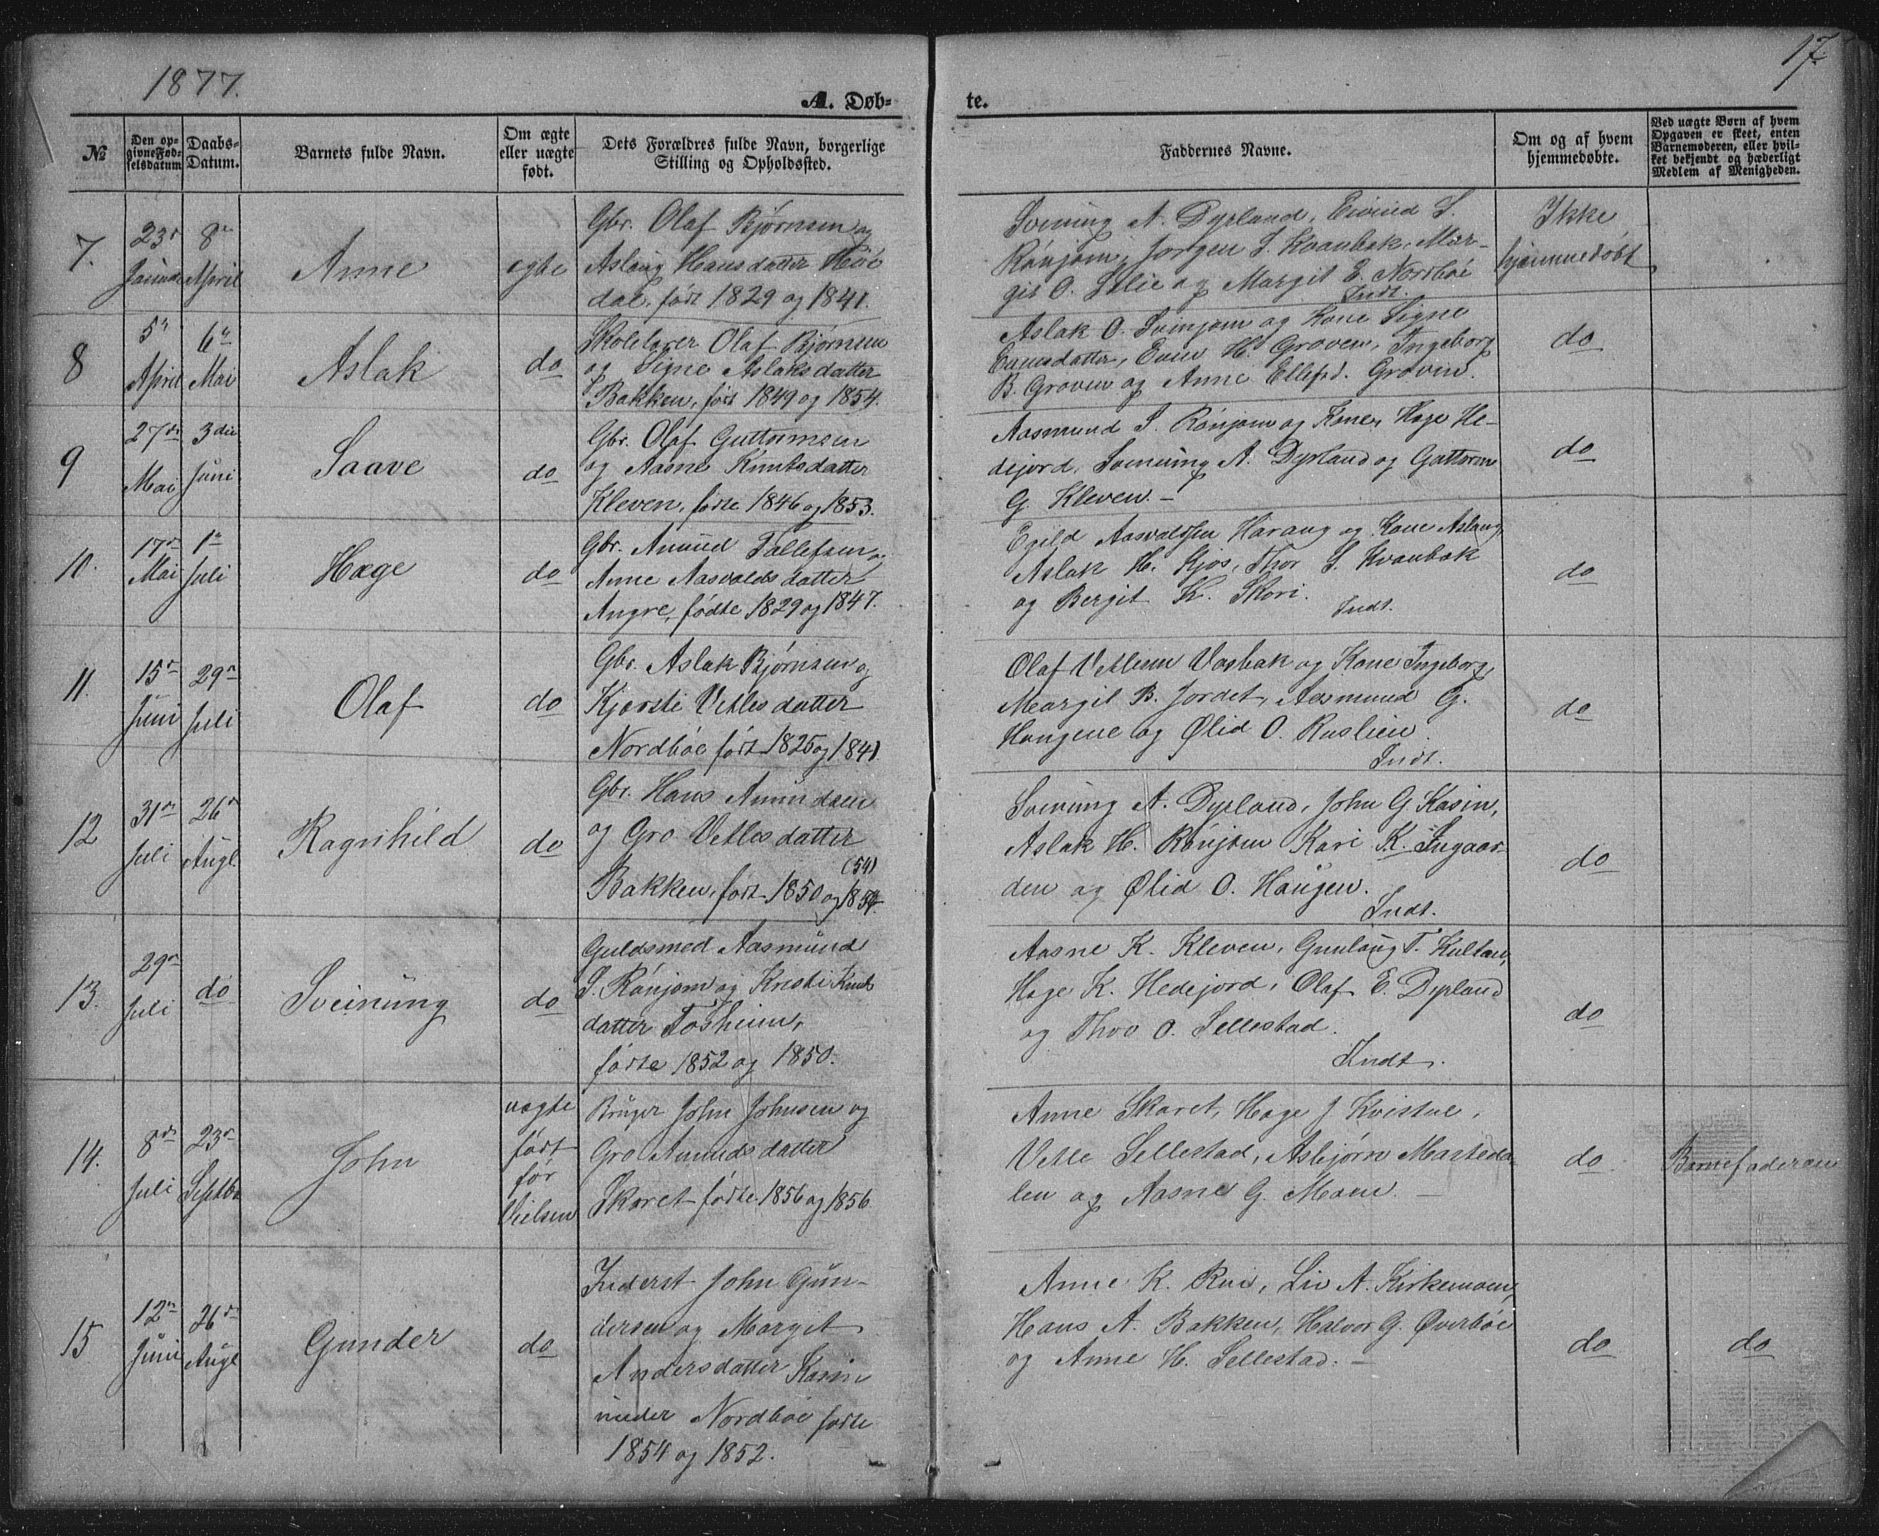 1877.
17.
A. Døb-
te.
№
Den op-
givne Fød-
selsdatum
Daabs-
Datum.
Barnets fulde Navn.
Om ægte
eller uægte
født.
Dets Forældres fulde Navn, borgerlige
Stilling og Opholdssted.
Faddernes Navne.
Om og af hvem
hjemmedøbte.
Ved uægte Børn af hvem
Opgaven er skeet, enten
Barnemoderen, eller hvil-
ket bekjendt og hæderligt
Medlem af Menigheden.
7.
23de
8de
April
Anne
egte
Gbr. Olaf Bjørnsen og
Aslaug Hansdatter Höi
dal, født 1829 og 1841.
Sveinung A. Dyrland, Eivind S.
Rönjom, Jørgen S. Kvanbæk, Mar-
git O. Selie og Margit E. Nordbøe
Indt.
Ikke
hjemmedøbt
8
5te
April
6te
Mai
Aslak
do
Skolelærer Olaf Bjørnsen
og Signe Aslaksdatter
Bakken, født 1849 og 1854.
Aslak O. Svenjom og Kone Signe
Evensdatter, Even H. Groven, Ingeborg
B. Groven og Anne Ellefsd. Groven.
do
9
27de
Mai
3die
Juni
Saave
do
Gbr. Olaf Guttormsen
og Aasne Knutsdatter
Kleven, fødte 1846 og 1853.
Aasmund S. Rönjom og Kone, Hæge He-
dejord, Sveinung A. Dyrland og Guttorm
G. Kleven. –
do
10.
17de
Mai
1te
Juli
Hæge
do
Gbr. Amund Tallefsen og
Anne Aasvaldsdatter
Angre, fødte 1829 og 1847.
Egild Aasvaldsen Harang og Kone Aslaug,
Aslak H. Kjos, Thor S. Kvanbæk
og Bergit K. Skori.
Indt.
do
11.
15de
Juni
29de
Juli
Olaf
do
Gbr. Aslak Bjørnsen og
Kjersti Vetlesdatter
Nordbøe født 1825 og 1841
Olaf Vetlesen Vasbæk og Kone Ingeborg,
Margit B. Jordet, Aasmund G.
Haugene og Ølid O. Ruslien.
Indt.
do
12
31te
Juli
26de
Augt.
Ragnhild
do
Gbr. Hans Amundsen
og Gro Vetlesdatter
(54)
Bakken, født 1850 og 1854.
Sveinung A. Dyrland, John G. Kasin,
Aslak H. Rönjom Kari K. Ingaar-
den og Ølid O. Haugen.
Indt.
do
13.
29de
Juli
do
Sveinung
do
Guldsmed Aasmund
S. Rönjom og Kristi Knuts
datter Tosheim,
fødte 1852 og 1850.
Aasne K. Kleven, Gunlaug T. Kultan,
Hæge K. Hedejord, Olaf E. Dyrland
og Thov O. Sellestad.
Indt.
do
14.
8de
Juli
23de
Septbr
John
uægte
født
før
Vielsen
Bruger John Johnsen og
Gro Amundsdatter
Skaret fødte 1856 og 1856
Anne Skaret, Hæge J. Kvistul,
Vetle Sellestad, Asbjørn Masteda-
len og Aasne G. Moen. –
do
Barnefaderen
15
12te
Juni
26de
Augt
Gunder
do
Inderst John Gun-
dersen og Margit
Andersdatter Kasin
under Nordbøe fødte
1854 og 1852.
Anne K. Rui, Liv A. Kirkemoen,
Hans A. Bakken, Halvor G. Øverbøe
og Anne H. Sellestad. –
do
do